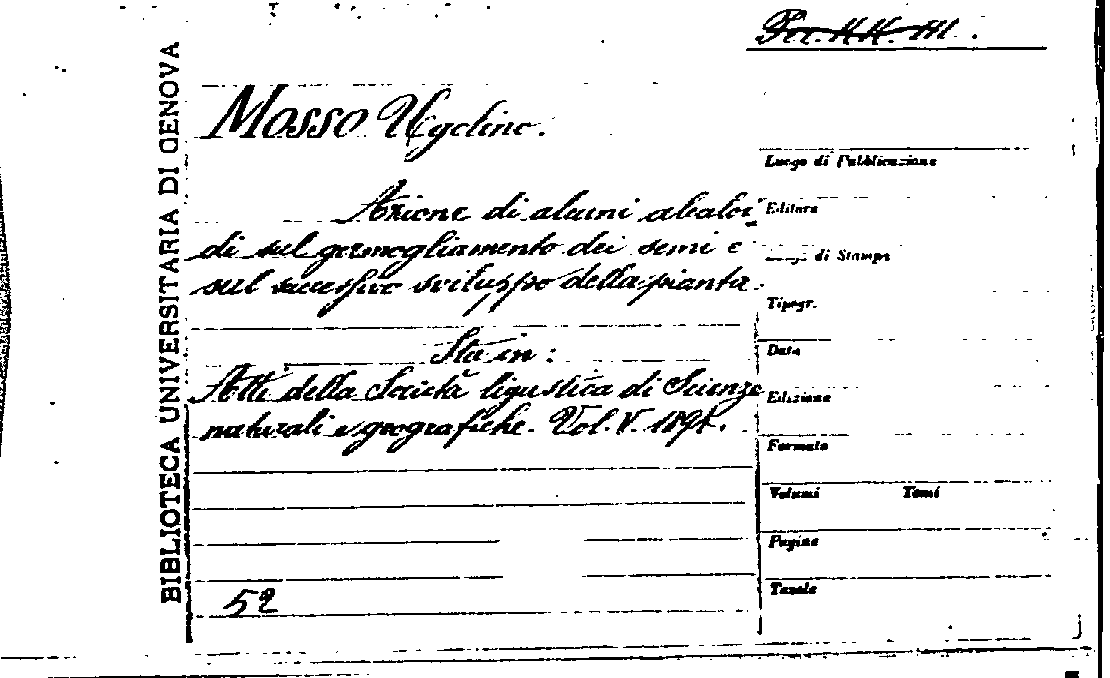 Per. HH. III.
BIBLIOTECA UNIVERSITARIA DI GENOVA
Mosso Ugolino.
Azione di alcuni alcaloi
di sul germogliamento dei semi e
sul successivo sviluppo della pianta.
Sta in:
Atti della Società ligustica di Scienze
naturali e geografiche. Vol. V. 1894.
52
Luogo di Pubblicazione
Editore
Luogo di Stampa
Tipogr.
Data
Edizione
Formato
Volumi Tomi
Pagine
Tavole